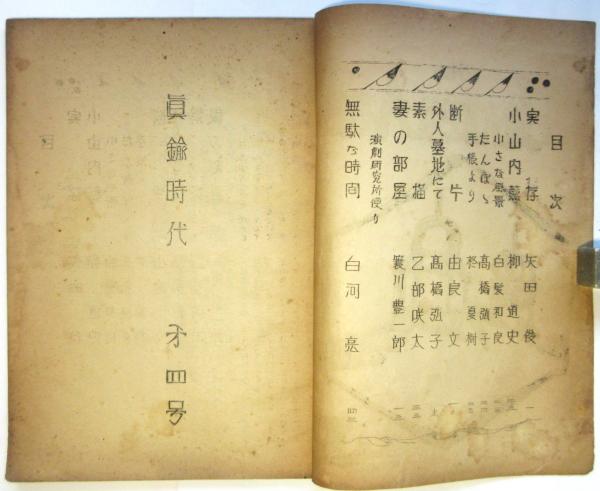 目次
実存 矢田俊 一
小山内薫 柳道史
小さな風景 白髪和良
たんぽゝ 高橋弘子
手帳より 柊夏樹
断片 由良文
外人墓地にて 高橋弘子
素描 乙部咲太
妻の部屋 簑川豊一郎
演劇研究所便り
無駄な時間 白河亮
眞鍮時代 才四号